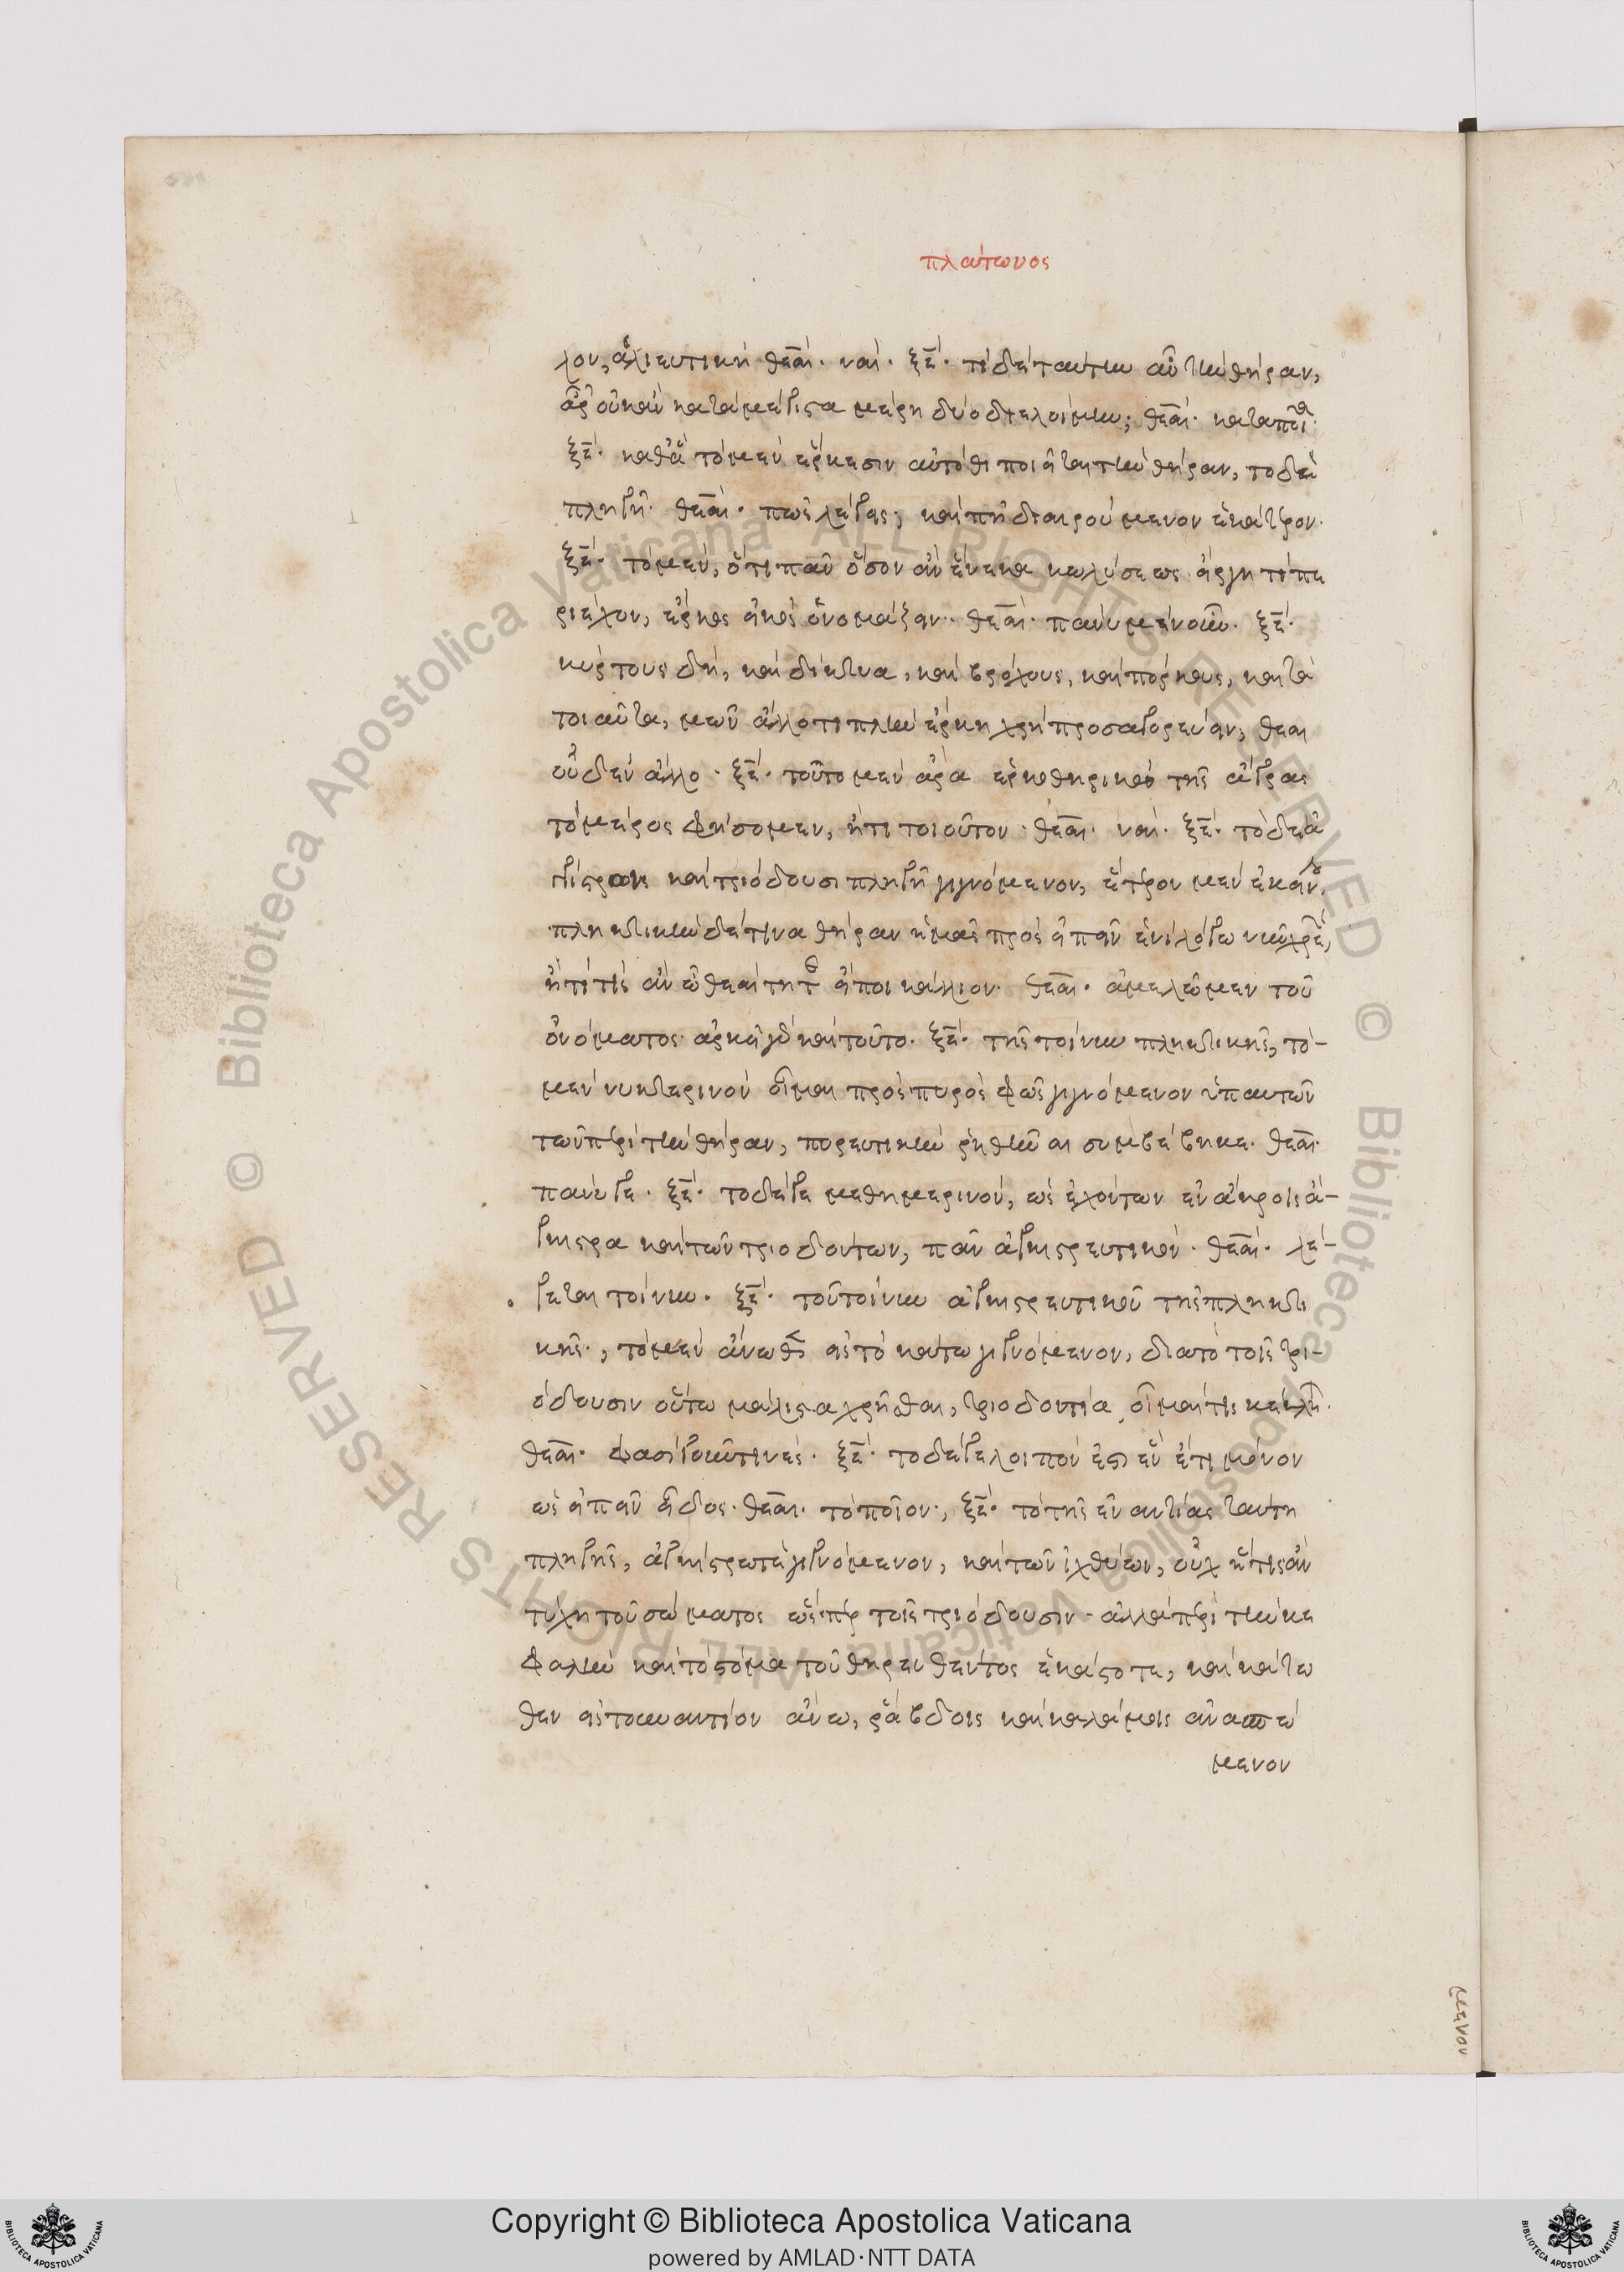 πλάτωνος
λον, ἁλιευτικὴ θεαί. ναί. ξέ. τί δέ ταύτην αὖ τὴν θήραν,
ἆρ' οὐκ ἂν κατὰ μέγιστα μέρη δύο διέλοιμεν; θεαί. κατὰ ποῖα.
ξέ. καθ' ἃ τὸ μὲν ἕρκεσιν αὐτόθι ποιεῖται τὴν θήραν, τὸ δὲ
πληγῆ. θεαί. πῶς λέγεις; καὶ πῆ διαιρούμενον ἑκάτερον.
ξέ. τὸ μὲν, ὅτι πᾶν ὅσον ἂν ἕνεκα κωλύσεως εἴργη τί πε
ριέχον, ἕρκος εἰκὸς ὀνομάζειν. θεαί. πάνυ μὲν οὖν. ξέ.
κύρτους δὴ, καὶ δίκτυα, καὶ βρόχους, καὶ πόρκους, καὶ τὰ
τοιαῦτα, μῶν ἄλλο τι πλὴν ἕρκη χρὴ προσαγορεύειν; θεαι
οὐδὲν ἄλλο. ξέ. τοῦτο μὲν ἄρα ἑρκοθηρικὸν τῆς ἄγρας
τὸ μέρος φήσομεν, ἤ τι τοιοῦτον. θεαί. ναί. ξέ. τὸ δὲ ἀ
γκίστροις καὶ τριόδουσι πληγῆ γιγνόμενον, ἕτερον μὲν ἐκείνου.
πληκτικὴν δέ τινα θήραν ἡμᾶς προσειπεῖν ἑνὶ λόγω νῦν χρεών,
ἢ τί τις ἂν ὦ θεαίτητε εἴποι κάλλιον. θεαί. ἀμελῶμεν τοῦ
ὀνόματος. ἀρκεῖ γὰρ καὶ τοῦτο. ξέ. τῆς τοίνυν πληκτικῆς, τὸ-
μὲν νυκτερινὸν οἶμαι πρὸς πυρὸς φῶς γιγνόμενον ὑπ' αυτῶν
τῶν περὶ τὴν θήραν, πυρευτικὴν ῥηθῆναι συμβέβηκε. θεαί.
πάνυ γε. ξέ. τὸ δέ γε μεθημερινὸν, ὡς ἐχόντων ἐν ἄκροις ἄ-
γκιστρα καὶ τῶν τριοδόντων, πᾶν ἀγκιστρευτικόν. θεαί. λέ-
γεται τοίνυν. ξέ. τοῦ τοίνυν ἀγκιστρευτικοῦ τῆς πληκτι
κῆς, τὸ μὲν ἄνωθεν εἰς τὸ κάτω γιγνόμενον, διὰ τὸ τοῖς τρι-
όδουσιν οὕτω μάλιστα χρῆσθαι, τριοδοντία οἶμαί τις κέκληται.
θεαί. φασὶ γοῦν τινές. ξέ. τὸ δέ γε λοιπόν ἐστιν ἓν ἔτι μόνον
ὡς εἰπεῖν εἶδος. θεαί. τὸ ποῖον; ξέ. τὸ τῆς ἐναντίας ταύτη
πληγῆς, ἀγκίστρω τὲ γιγνόμενον, καὶ τῶν ἰχθύων, οὐχ ἧ τις ἂν
τύχη τοῦ σώματος ὥσπερ τοῖς τριόδουσιν. ἀλλὰ περὶ τὴν κε
φαλὴν καὶ τὸ στόμα τοῦ θηρευθέντος ἑκάστοτε, καὶ κάτω
θεν εἰς τουναντίον ἄνω, ῥάβδοις καὶ καλάμοις ἀνασπώ
μενον
μενον
Copyright © Biblioteca Apostolica Vaticana
powered by AMLAD·NTT DATA